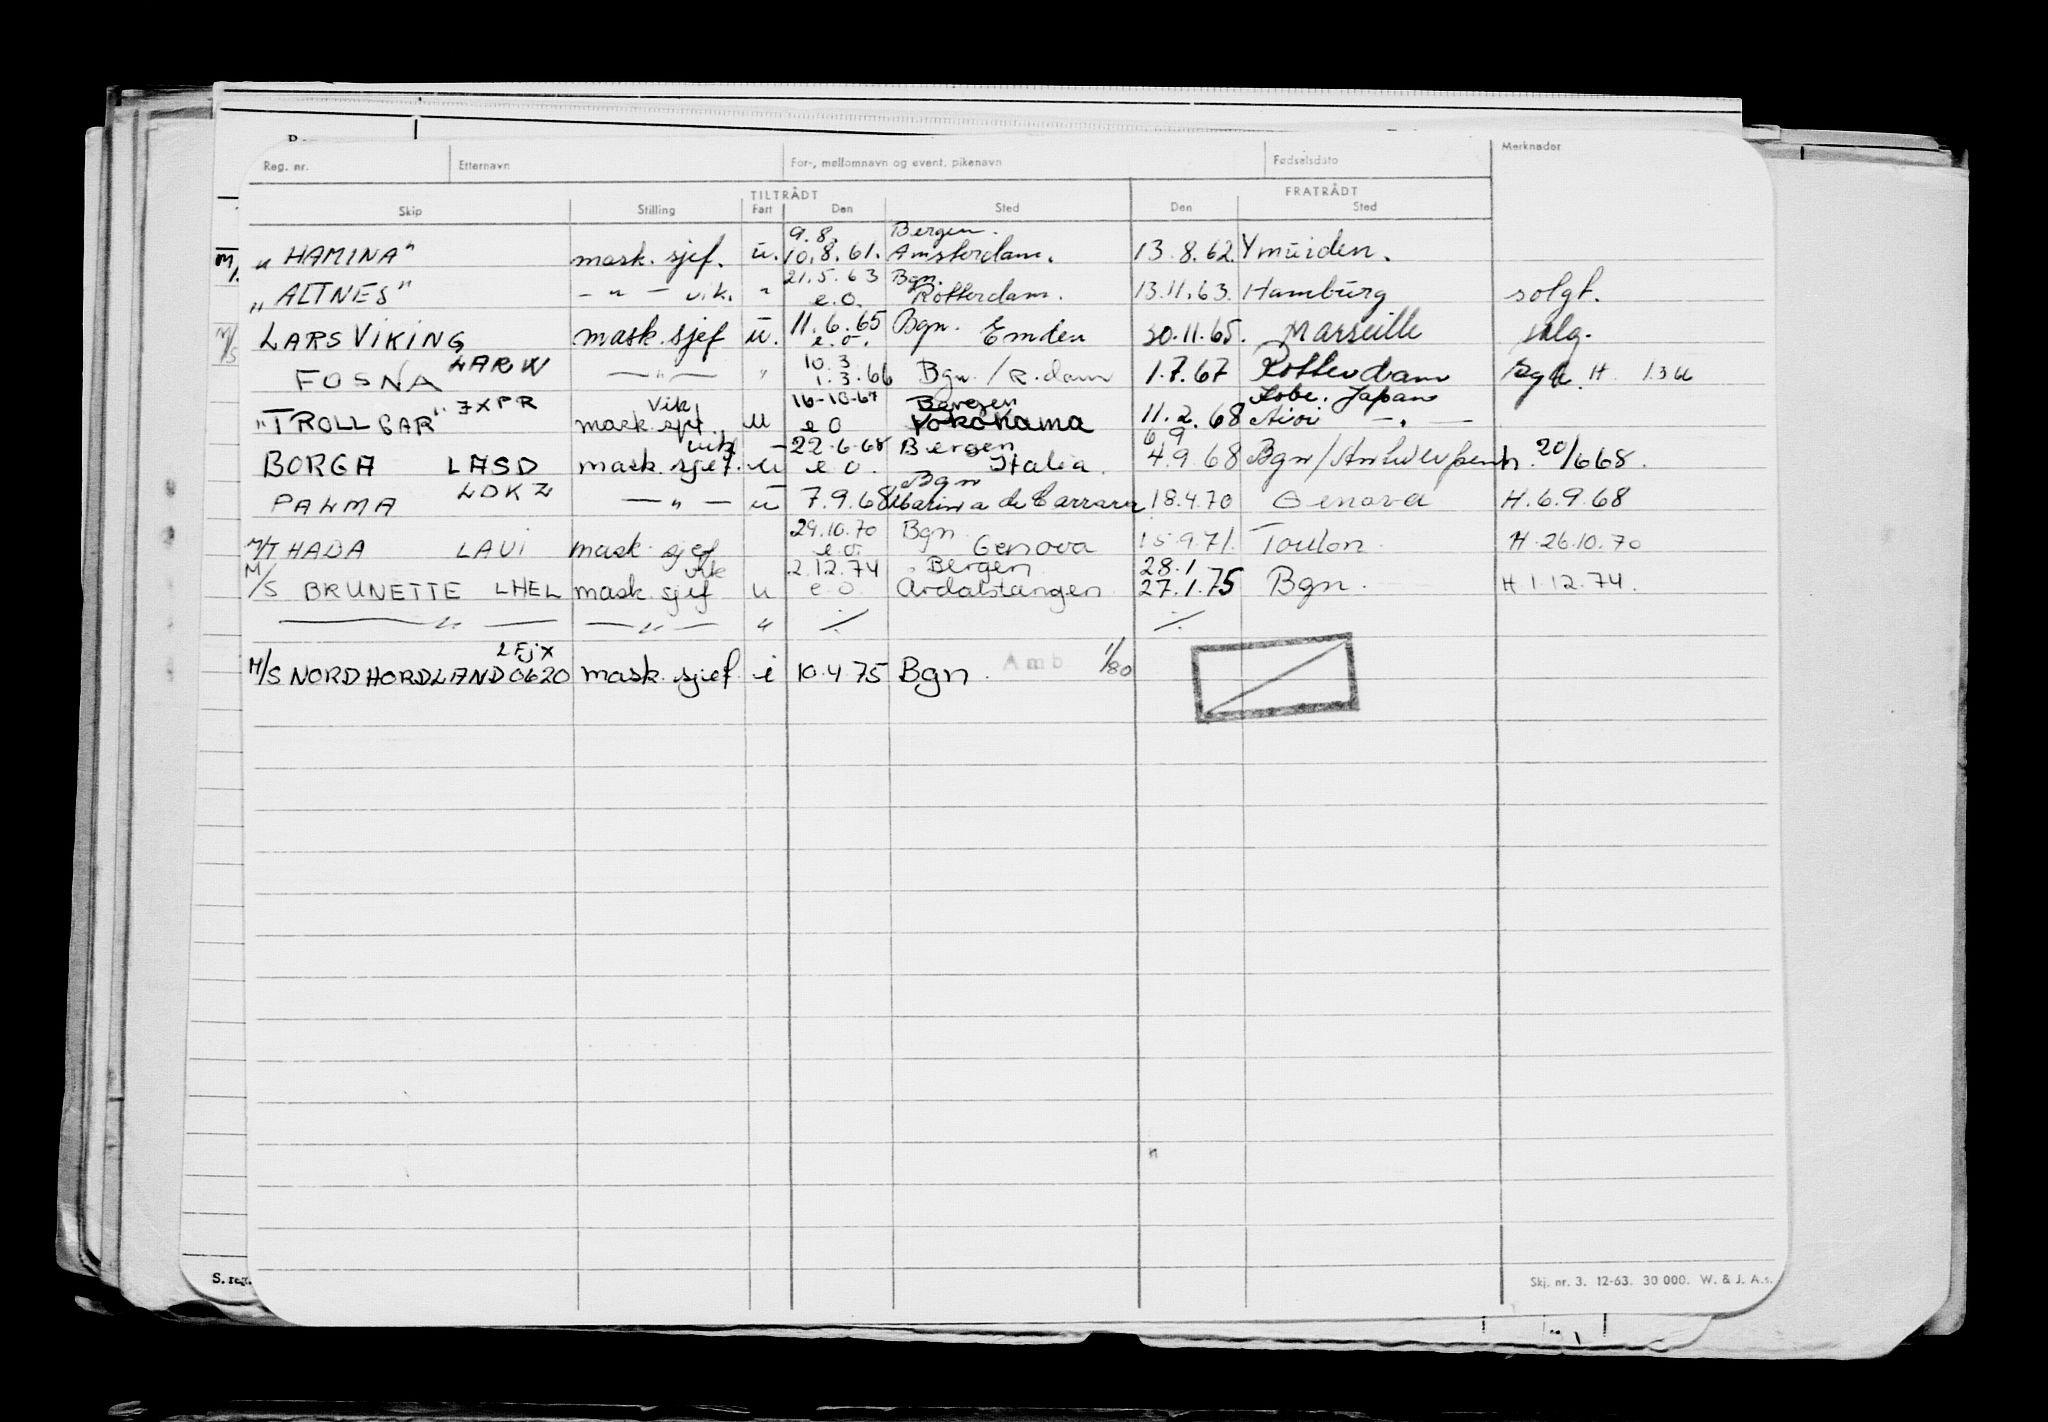 Reg. nr. Etternavn For-, mellomnavn og event. pikenavn Fødselsdato Merknader
TILTRÅDT FRATRÅDT
Skip Stilling Fart Den Sted Den Sted
9.8. Bergen.
M/ "HAMINA" mask. sjef. u. 10.8.61. Amsterdam. 13.8.62. Ymuiden.
21.5.63 Bgn.
"ALTNES" - " - vik. " e.o. Rotterdam. 13.11.63. Hamburg solgt.
M/S LARS VIKING mask. sjef u. 11.6.65 Bgn. Emden 30.11.65. Marseille
e.o.
LARW 10.3
FOSNA - " - " 1.3.66 Bgn. / R.dam 1.7.67 Rotterdam H
Vik 16-10-67 Bergen Kobe. Japan
"TROLLGAR" JXPR mask. sjef. u e o Yokohama 11.2.68 Aioi - " -
vik - 22-6-68 Bergen 6 9
BORGA LASD mask. sjef. u e o. Italia. 4.9.68 Bgn/Antwerpen h. 20/6 68.
Bgn
PALMA LDKZ - " - u 7.9.68 Marina de Carrara 18.4.70 Genova H. 6.9.68
29.10.70 Bgn
M/T HADA LAUI mask. sjef e.o. Genova 15.9.71. Toulon. H. 26.10.70
vik 2.12.74 Bergen 28.1
M/S BRUNETTE LHEL mask. sjef u e.o. Ardalstangen 27.1.75 Bgn. H 1.12.74.
- " - - " - " ./. ./.
LFJX
M/S NORDHORDLAND 0620 mask. sjef i 10.4 75 Bgn. Amb 1/80
S. reg.
Skj. nr. 3. 12-63. 30 000. W. & J. A.s.